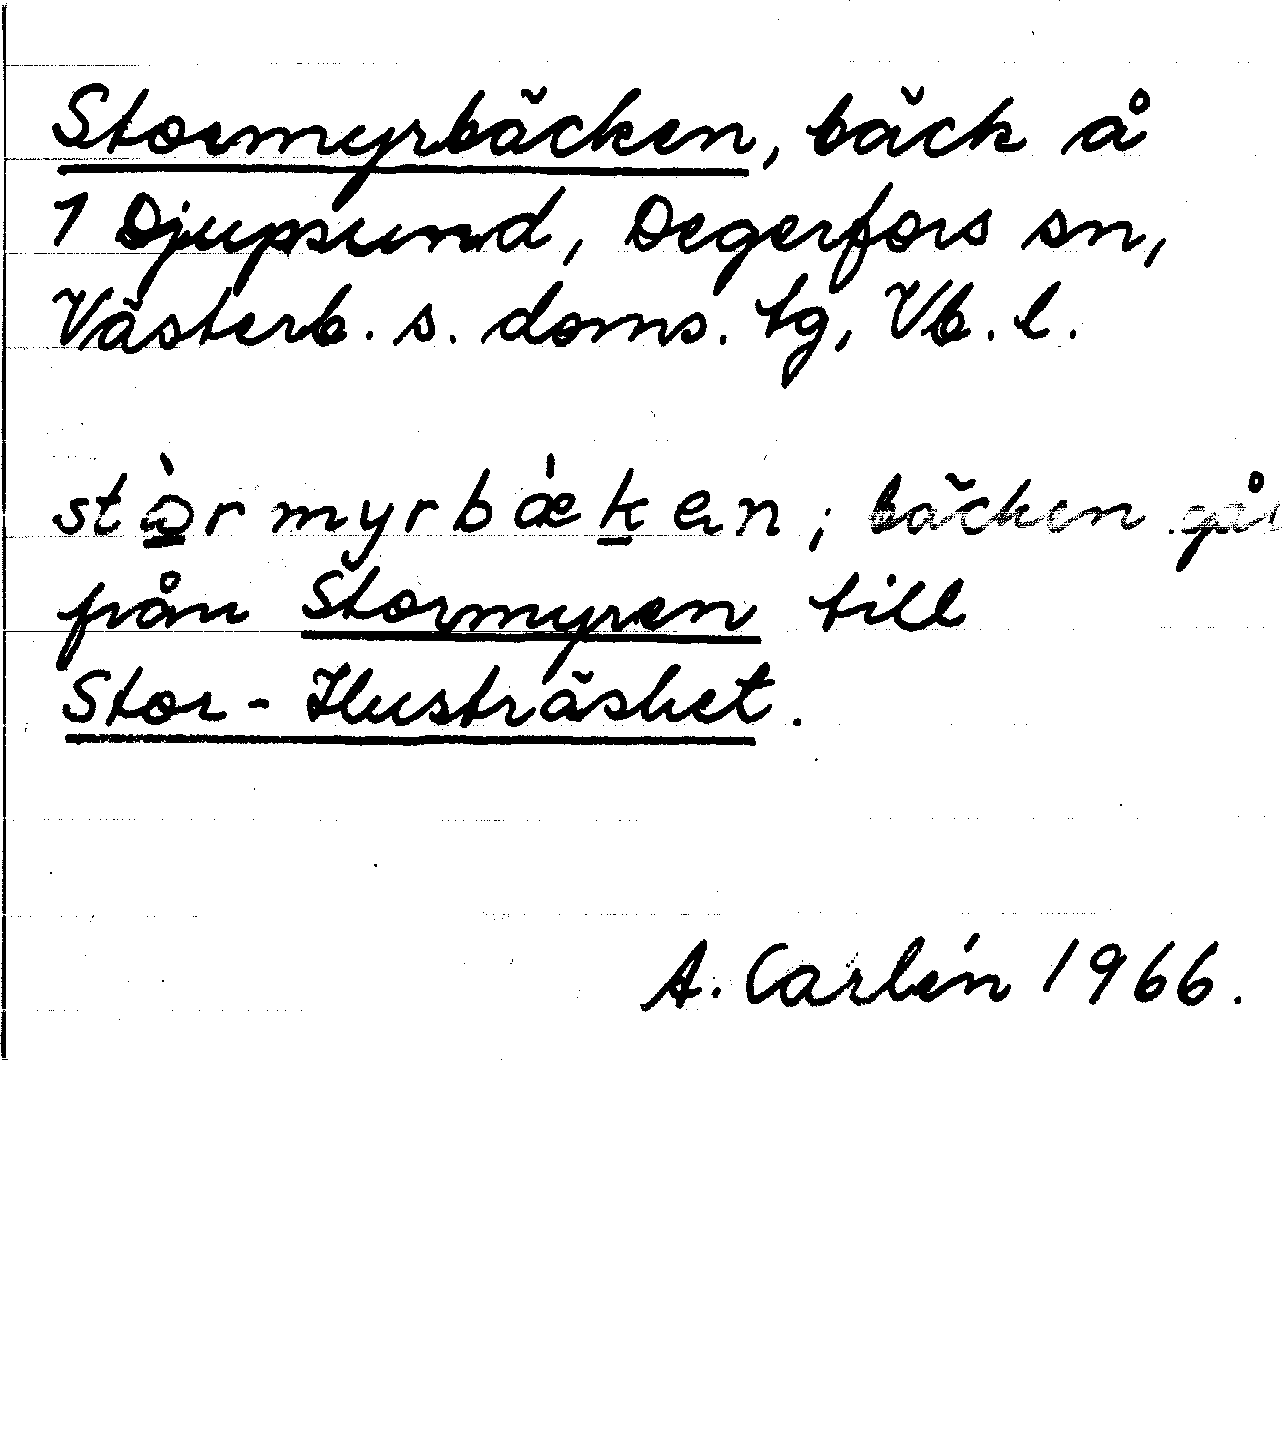 Stormyrbäcken, bäck å
1 Djupsund, Degerfors sn,
Västerb. s. doms. tg, Vb. l.
stò̠rmyrbǽk̠en; bäcken går
från Stormyren till
Stor-Ilusträsket.
A. Carlén 1966.